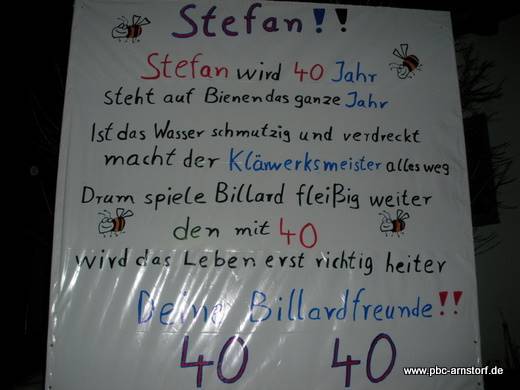 Stefan!!
Stefan wird 40 Jahr
steht auf Bienen das ganze Jahr
Ist das Wasser schmutzig und verdreckt
macht der Klärwerksmeister alles weg
Drum spiele Billard fleißig weiter
den mit 40
wird das Leben erst richtig heiter
Deine Billardfreunde!!
40 40
www.pbc-arnstorf.de